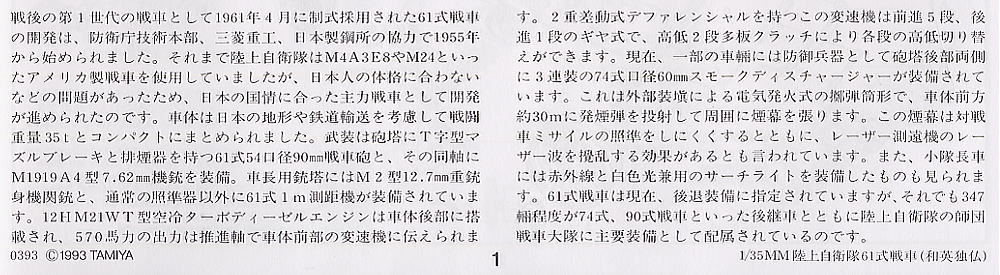 戦後の第1世代の戦車として1961年4月に制式採用された61式戦車
の開発は、防衛庁技術本部、三菱重工、日本製鋼所の協力で1955年
から始められました。それまで陸上自衛隊はM4A3E8やM24といっ
たアメリカ製戦車を使用していましたが、日本人の体格に合わない
などの問題があったため、日本の国情に合った主力戦車として開発
が進められたのです。車体は日本の地形や鉄道輸送を考慮して戦闘
重量35tとコンパクトにまとめられました。武装は砲塔にT字型マ
ズルブレーキと排煙器を持つ61式54口径90mm戦車砲と、その同軸に
M1919A4型7.62mm機銃を装備。車長用銃塔にはM2型12.7mm重銃
身機関銃と、通常の照準器以外に61式1m測距機が装備されていま
す。12HM21WT型空冷ターボディーゼルエンジンは車体後部に搭
載され、570馬力の出力は推進軸で車体前部の変速機に伝えられま
す。2重差動式デファレンシャルを持つこの変速機は前進5段、後
進1段のギヤ式で、高低2段多板クラッチにより各段の高低切り替
えができます。現在、一部の車輛には防御兵器として砲塔後部両側
に3連装の74式口径60mmスモークディスチャージャーが装備されて
います。これは外部装塡による電気発火式の擲弾筒形で、車体前方
約30mに発煙弾を投射して周囲に煙幕を張ります。この煙幕は対戦
車ミサイルの照準をしにくくするとともに、レーザー測遠機のレー
ザー波を攪乱する効果があるとも言われています。また、小隊長車
には赤外線と白色光兼用のサーチライトを装備したものも見られま
す。61式戦車は現在、後退装備に指定されていますが、それでも347
輛程度が74式、90式戦車といった後継車とともに陸上自衛隊の師団
戦車大隊に主要装備として配属されているのです。
0393 ©1993 TAMIYA
1
1/35MM 陸上自衛隊61式戦車(和英独仏)